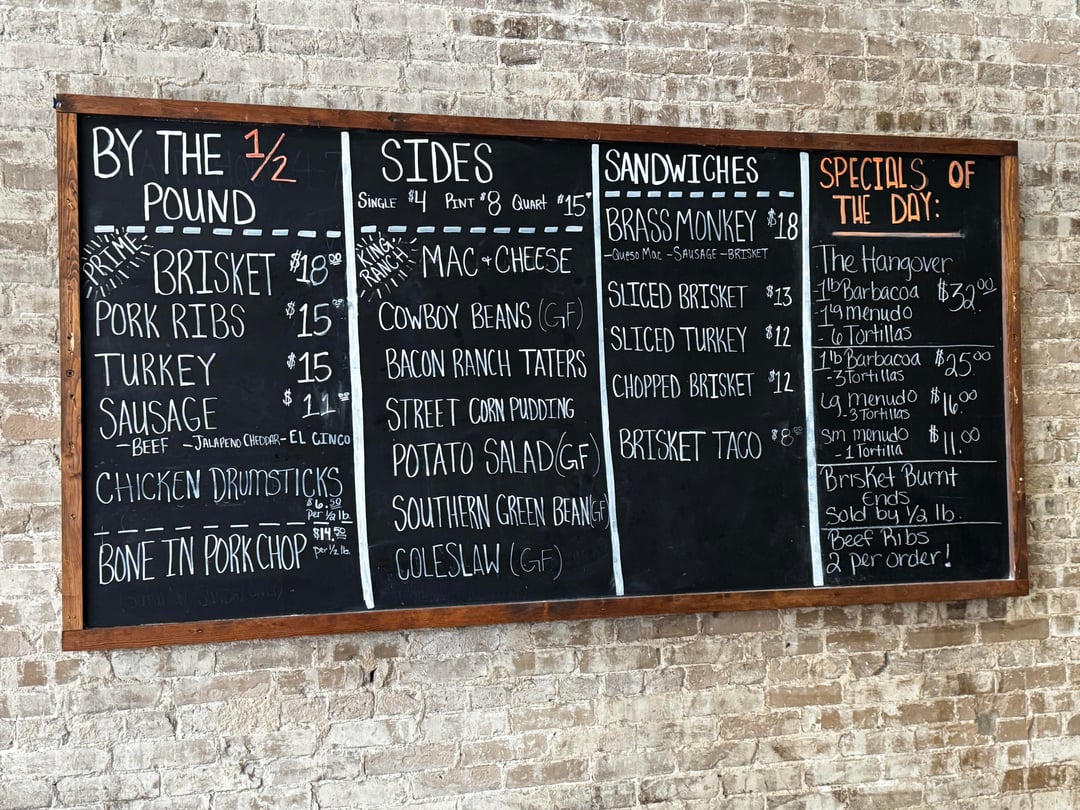 BY THE 1/2
POUND
PRIME
BRISKET $18.00
PORK RIBS $15
TURKEY $15
SAUSAGE $11
-BEEF -JALAPENO CHEDDAR -EL GINCO
CHICKEN DRUMSTICKS
$6.50
per 1/2 lb.
BONE IN PORK CHOP
$14.50
per 1/2 lb.
SIDES
SINGLE $4 PINT $8 QUART $15
KING
RANCH
MAC + CHEESE
COWBOY BEANS (GF)
BACON RANCH TATERS
STREET CORN PUDDING
POTATO SALAD (GF)
SOUTHERN GREEN BEAN (GF)
COLESLAW (GF)
SANDWICHES
BRASS MONKEY $18
-QUESO MAC -SAUSAGE -BRISKET
SLICED BRISKET $13
SLICED TURKEY $12
CHOPPED BRISKET $12
BRISKET TACO $8
SPECIALS OF
THE DAY:
The Hangover
1lb Barbacoa $32.00
1 lg menudo
- 6 Tortillas
1lb Barbacoa $25.00
-3 Tortillas
Lg menudo $16.00
-3 Tortillas
sm menudo $11.00
-1 Tortilla
Brisket Burnt
Ends
Sold by 1/2 lb.
Beef Ribs
2 per order!